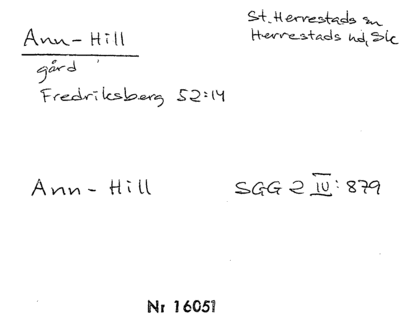 Ann-Hill
St. Herrestads sn
Herrestads hd, Sk
gård
Fredriksberg 52:14
Ann-Hill
SGG 2 IV: 879
Nr 16051